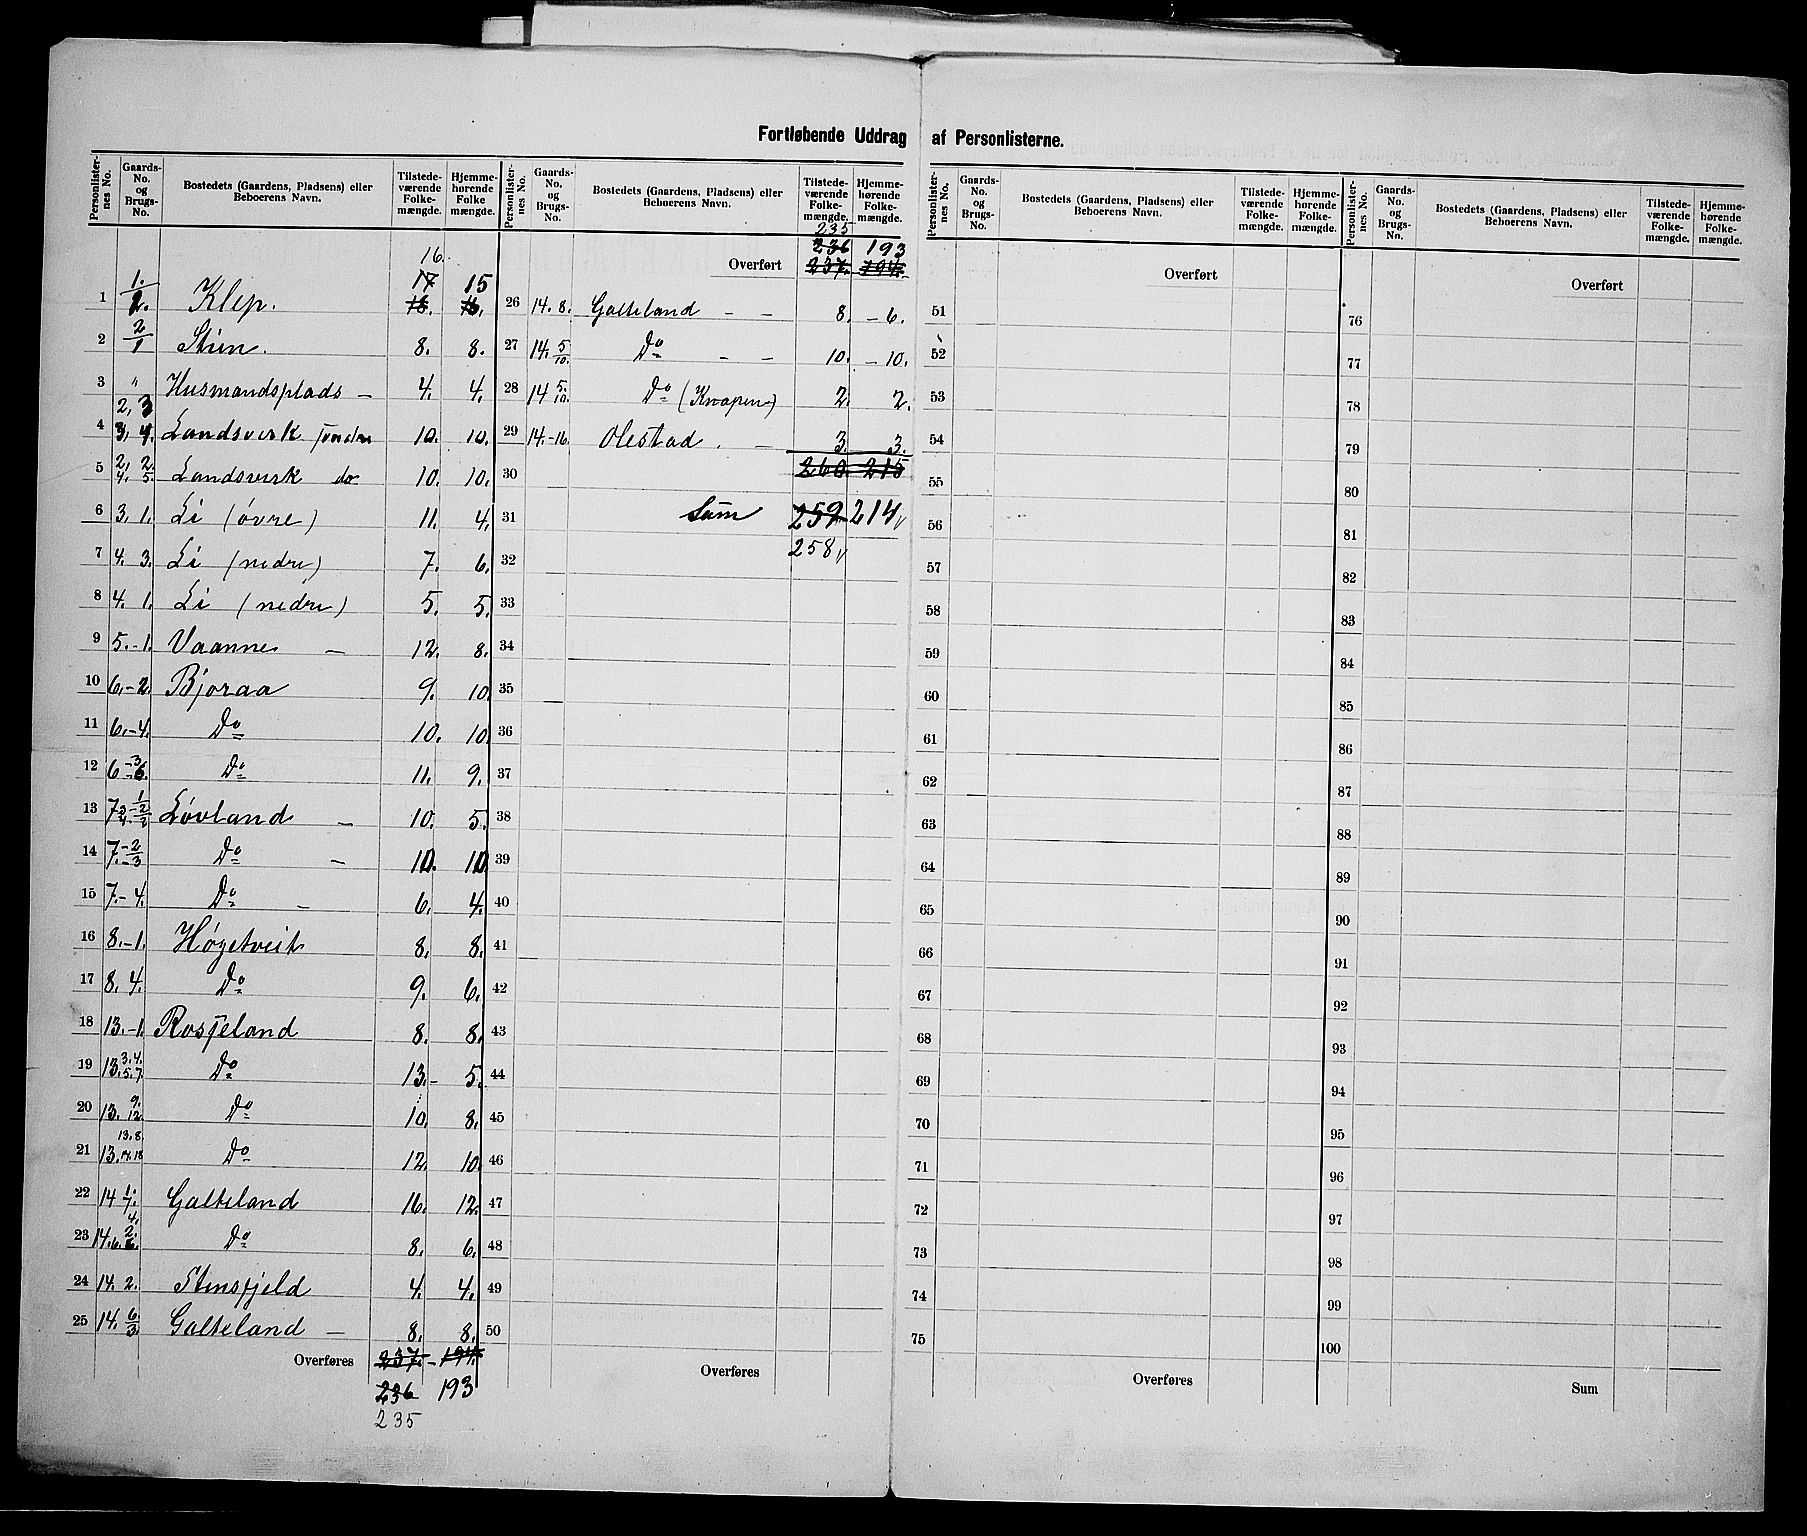 Fortløbende Uddrag af Personlisterne.
Personlister-nes No. | Gaards-No. og Brugs-No. | Bostedets (Gaardens, Pladsens) eller Beboerens Navn. | Tilstede-værende Folke-mængde. | Hjemme-hørende Folke mængde.
16.
17 15
1 1./2. Klep. 18. 16.
2 2/1 Stien. 8. 8.
3 " Husmandsplads - 4. 4.
2, 3
4 3, 4. Landsverk 10. 10.
5 2, 2. 4. 5. Landsverk do 10. 10.
6 3, 1. Li (øvre) 11. 4.
7 4. 3. Li (nedre) 7. 6.
8 4. 1. Li (nedre) 5. 5.
9 5.-1. Vaanne - 12. 8.
10 6.-2. Bjoraa 9. 10.
11 6.-4. Do 10. 10.
12 6-3/-6. Do 11. 9.
13 7 Løvland - 10. 5.
14 7.-2/-3 Do - 10. 10
15 7.-4. Do - 6. 4.
16 8.-1. Høgetveit 8. 8.
17 8. 4. Do 9. 6.
18 13.-1. Rosjeland 8. 8.
19 13. 3. 4. 5. 7. Do 13.- 5.
20 13. 9. 12. Do 10. 8.
21 13. 13. 8. 14. 18 Do 12. 10.
22 14 1. 7. Galteland 16. 12.
23 14. 6. 4. 2. 6. Do 8. 6.
24 14. 2. Stensfjeld 4. 4.
25 14. 6/3. Galteland - 8. 8.
Overføres 237. - 194.
236 193
235
Personlister-nes No. | Gaards-No. og Brugs-No. | Bostedets (Gaardens, Pladsens) eller Beboerens Navn. | Tilstede-værende Folke-mængde. | Hjemme-hørende Folke-mængde.
235
236 193
Overført 237. 194.
26 14. 8. Galteland - - 8. - 6.
27 14. 5/10. Do - - 10. - 10.
28 14 5. 10. Do (Knapen) 2. 2.
29 14.-16. Olestad. - 3. 3.
30 260. 215
31 Sum 259 214
32 258
33
34
35
36
37
38
39
40
41
42
43
44
45
46
47
48
49
50
Overføres
Personlister-nes No. | Gaards-No. og Brugs-No. | Bostedets (Gaardens, Pladsens) eller Beboerens Navn. | Tilstede-værende Folke-mængde. | Hjemme-hørende Folke-mængde.
Overført
51
52
53
54
55
56
57
58
59
60
61
62
63
64
65
66
67
68
69
70
71
72
73
74
75
Overføres
Personlister-nes No. | Gaards-No. og Brugs-No. | Bostedets (Gaardens, Pladsens) eller Beboerens Navn. | Tilstede-værende Folke-mængde. | Hjemme-hørende Folke-mængde.
Overført
76
77
78
79
80
81
82
83
84
85
86
87
88
89
90
91
92
93
94
95
96
97
98
99
100
Sum